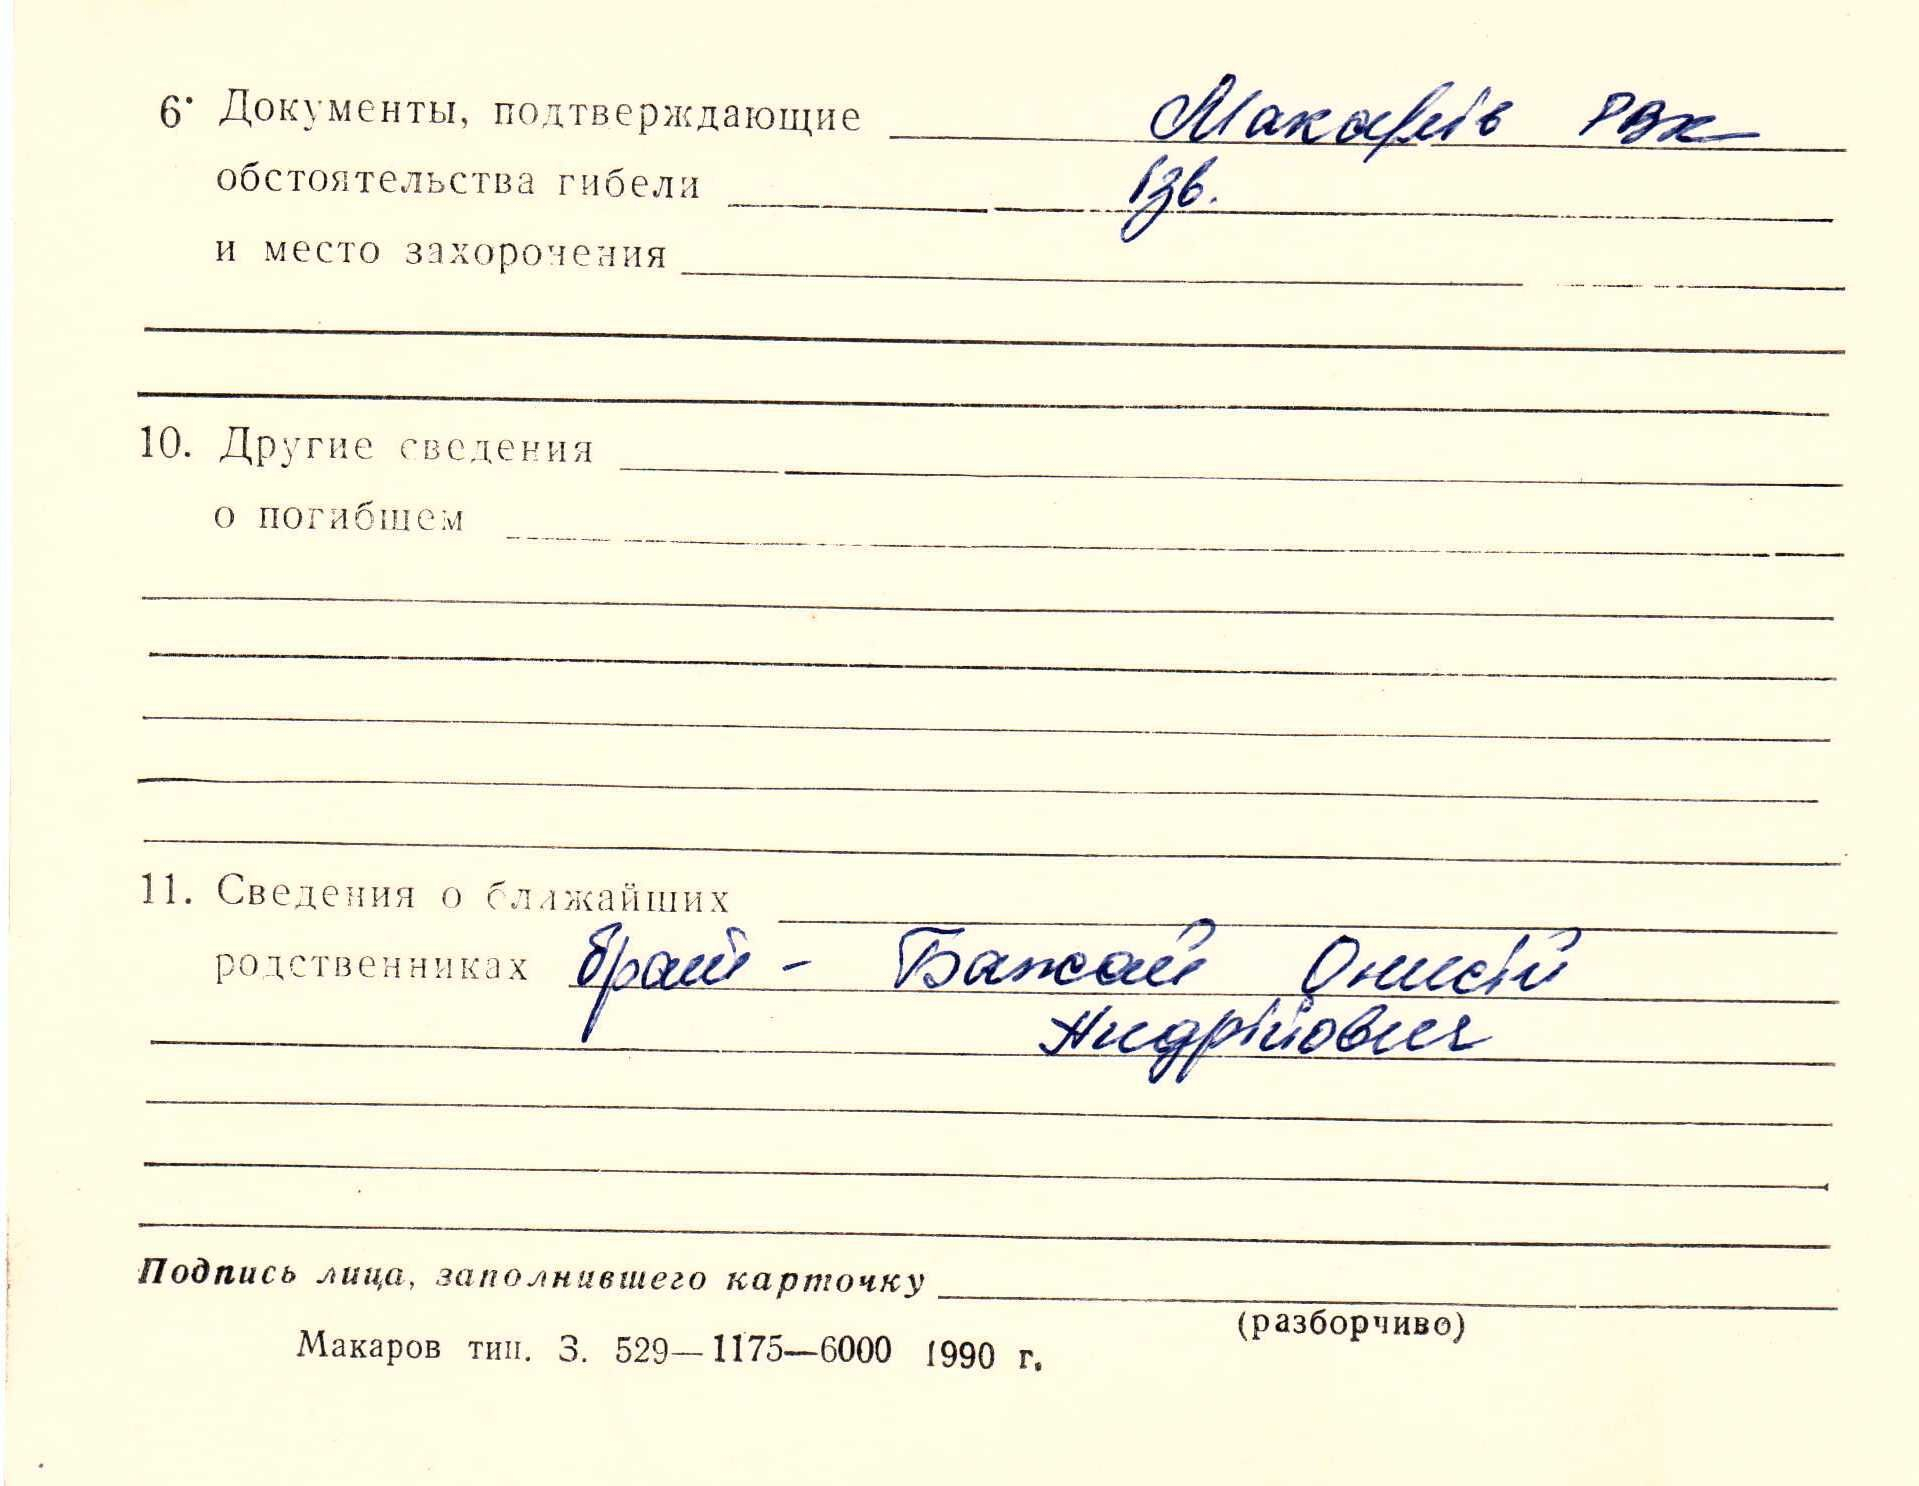 6. Документы, подтверждающие Макарів РВК
обстоятельства гибели ізв.
и место захорочения
10. Другие сведения
о погибшем
11. Сведения о ближайших
родственниках брат - Бажай Онисій
Андрійович
Подпись лица, заполнившего карточку
(разборчиво)
Макаров тип. З. 529—1175—6000 1990 г.